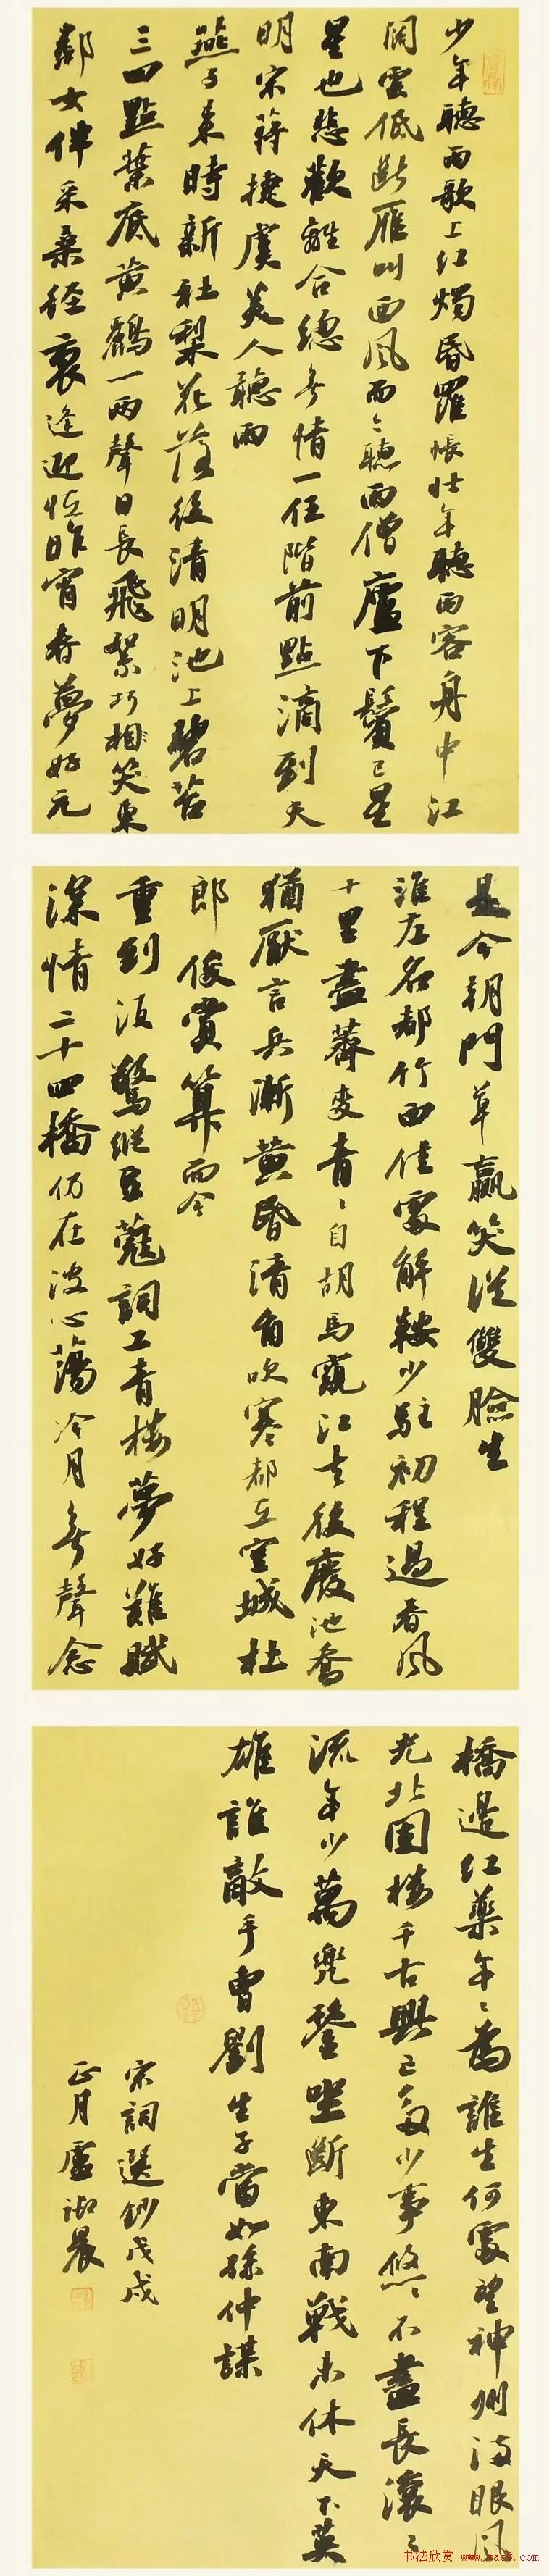 少年聽雨歌上紅燭昏羅帳壯年聽雨客舟中江
闊雲低斷雁叫西風而今聽雨僧廬下鬢已星
星也悲歡離合總無情一任階前點滴到天
明宋蔣捷虞美人聽雨
燕子來時新社梨花落後清明池上碧苔
三四點葉底黃鸝一兩聲日長飛絮巧相笑東
鄰女伴采桑徑裏逢迎怪昨宵春夢好元
是今朝鬥草贏笑從雙臉生
淮左名都竹西佳處解鞍少駐初程過春風
十里盡薺麥青〻自胡馬窺江去後廢池喬
猶厭言兵漸黃昏清角吹寒都在空城杜
郎俊賞算而今
重到須驚縱豆蔻詞工青樓夢好難賦
深情二十四橋仍在波心蕩冷月無聲念
橋邊紅藥年〻爲誰生何處望神州滿眼風
光北固樓千古興亡多少事悠〻不盡長滾〻
流年少萬兜鍪坐斷東南戰未休天下英
雄誰敵手曹劉生子當如孫仲謀
宋詞選鈔戊戌
正月盧淑晨
书法欣赏